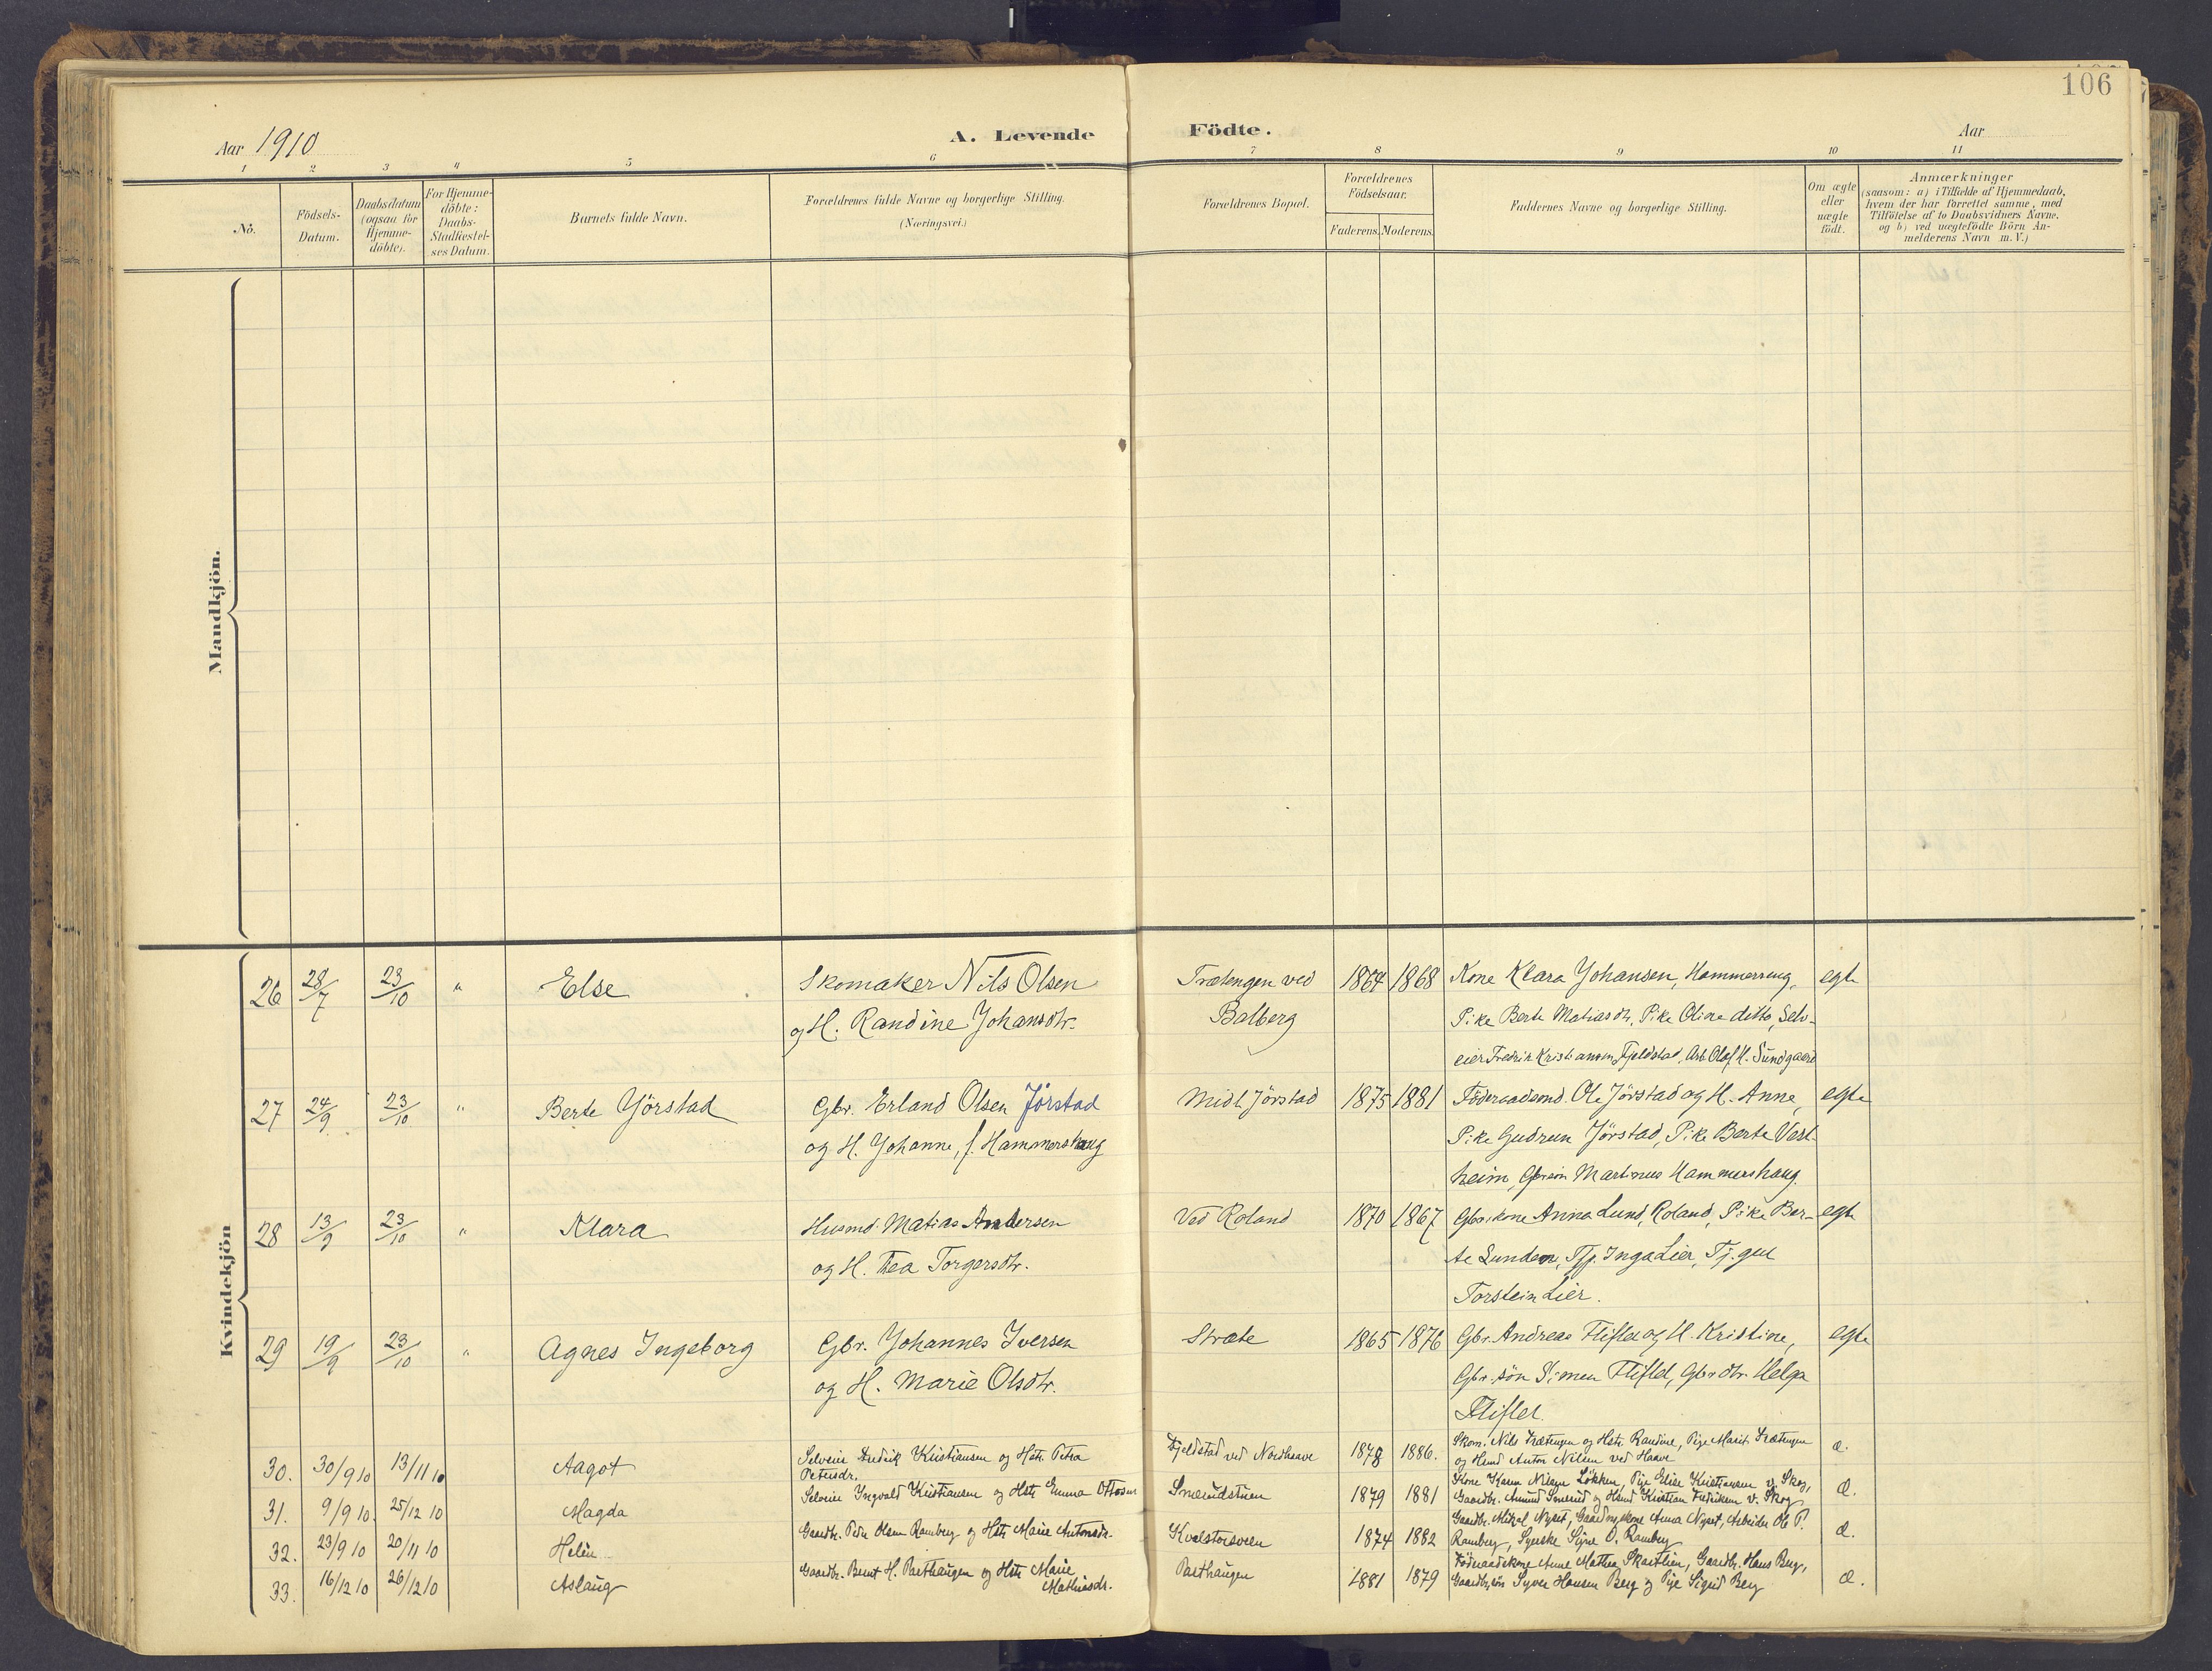 106
Aar 1910
A. Levende Födte.
Aar
1 2 3 4 5 6 7 8 9 10 11
No.
Födsels-
Datum.
Daabsdatum
(ogsaa for
Hjemme-
döbte).
For Hjemme-
döbte:
Daabs-
Stadfæstel-
ses Datum.
Barnets fulde Navn.
Forældrenes fulde Navne og borgerlige Stilling.
(Næringsvei.)
Forældrenes Bopæl.
Forældrenes
Födselsaar.
Faderens. Moderens.
Faddernes Navne og borgerlige Stilling.
Om ægte
eller
uægte
födt.
Anmærkninger
(saasom: a) i Tilfælde af Hjemmedaab,
hvem der har forrettet samme, med
Tilföielse af to Daabsvidners Navne.
og b) ved uægtefödte Börn An-
melderens Navn m.V.)
Mandkjön.
Kvindekjön
26 28/7 23/10 " Else Skomaker Nils Olsen Trætengen ved 1864 1868 Kone Klara Johansen, Hammerseng, egte
og H. Randine Johansdtr. Balberg Pike Berte Matiasdtr, Pike Oline ditto, Selv-
eier Fredrik Kristiansen Fjeldstad, Arb. Olaf H. Sundgaard
27 24/9 23/10 " Berte Jörstad Gbr. Erland Olsen Jörstad Midt. Jörstad 1875 1881 Föderaadsmd. Ole Jörstad og H. Anne, egte
og H. Johanne, f. Hammershaug Pike Gudrun Jörstad, Pike Berte Vest-
heim, Gbrsön Martinus Hammershaug.
28 13/9 23/10 " Klara Husmd. Matias Andersen Ved Roland 1870 1867 Gbr.kone Anna Lund, Roland, Pike Ber- egte
og H. Thea Torgersdtr. te Sunden, Tjp. Inga Lier, Tj.gut
Torstein Lier.
29 19/9 23/10 " Agnes Ingeborg Gbr. Johannes Iversen Stræte 1865 1876 Gbr. Andreas Fliflet og H. Kristine, egte
og H. Marie Olsdtr. Gbr.sön Simen Fliflet, Gbr.dtr. Helga
Fliflet.
30. 30/9 10 13/11 10 Aagot Selveier Fredrik Kristiansen og Hstr. Petra Fjeldstad ved Nordhaave 1878 1886. Skom. Nils Trætengen og Hstr. Randine, Pige Marit Trætengen æ.
Petersdr. og Husmd Anton Nilsen ved Haave
31. 9/9 10 25/12 10 Magda Selveier Ingvald Kristiansen og Hstr. Emma Ottosen Smerudstuen 1879 1881 Kone Karen Nilsen Løkken, Pige Elise Kristiansen v. Skog, æ.
Gaardbr. Amund Smerud og Husmd Kristian Fredriksen v. Skog
32. 23/9 10 20/11 10 Helén Gaardbr. Peder Olsen Ramberg og Hstr. Marie Antonsdr. Kvelstorsveen 1874 1882 Gaardbr. Mikal Nyset, Gaardmskone Anna Nyset, Arbeider Ole P. æ.
Ramberg, Syerske Signe O. Ramberg
33. 16/12 10 26/12 10 Aslaug Gaardbr. Bernt H. Parthaugen og Hstr. Marie Parthaugen 1881 1879 Föderaadskone Anne Mathea Skartlien, Gaardbr. Hans Berg, æ.
Mathiasdr. Gaardbrsön Syver Hansen Berg og Pige Sigrid Berg